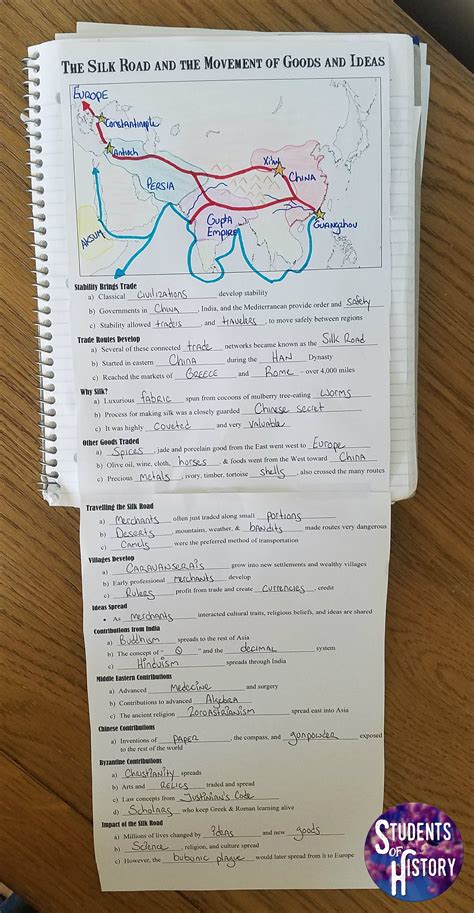 THE SILK ROAD AND THE MOVEMENT OF GOODS AND IDEAS
EUROPE
Constantinople
Antioch
Xi'an
PERSIA
CHINA
Gupta
Empire
AKSUM
GUANGZHOU
Stability Brings Trade
a) Classical civilizations develop stability
b) Governments in China, India, and the Mediterranean provide order and safety
c) Stability allowed traders, and travelers, to move safely between regions
Trade Routes Develop
a) Several of these connected trade networks became known as the Silk Road
b) Started in eastern China during the HAN Dynasty
c) Reached the markets of GREECE and ROME – over 4,000 miles
Why Silk?
a) Luxurious fabric spun from cocoons of mulberry tree-eating worms
b) Process for making silk was a closely guarded Chinese secret
c) It was highly coveted and very valuable
Other Goods Traded
a) Spices, jade and porcelain good from the East went west to Europe
b) Olive oil, wine, cloth, horses, & foods went from the West toward China
c) Precious metals, ivory, timber, tortoise shells, also crossed the many routes
Travelling the Silk Road
a) Merchants often just traded along small portions
b) Deserts, mountains, weather, & bandits made routes very dangerous
c) Camels were the preferred method of transportation
Villages Develop
a) CARAVANSERAIS grow into new settlements and wealthy villages
b) Early professional merchants develop
c) Rulers profit from trade and create currencies, credit
Ideas Spread
• As merchants interacted cultural traits, religious beliefs, and ideas are shared
Contributions from India
a) Buddhism spreads to the rest of Asia
b) The concept of " 0 " and the decimal system
c) Hinduism spreads through India
Middle Eastern Contributions
a) Advanced medecine and surgery
b) Contributions to advanced Algebra
c) The ancient religion ZOROASTRIANISM spread east into Asia
Chinese Contributions
a) Inventions of PAPER, the compass, and gunpowder exposed
to the rest of the world
Byzantine Contributions
a) Christianity spreads
b) Arts and RELICS traded and spread
c) Law concepts from Justinian's Code
d) Scholars who keep Greek & Roman learning alive
Impact of the Silk Road
a) Millions of lives changed by ideas and new goods
b) Science, religion, and culture spread
c) However, the bubonic plague would later spread from it to Europe
STUDENTS
OF
HISTORY